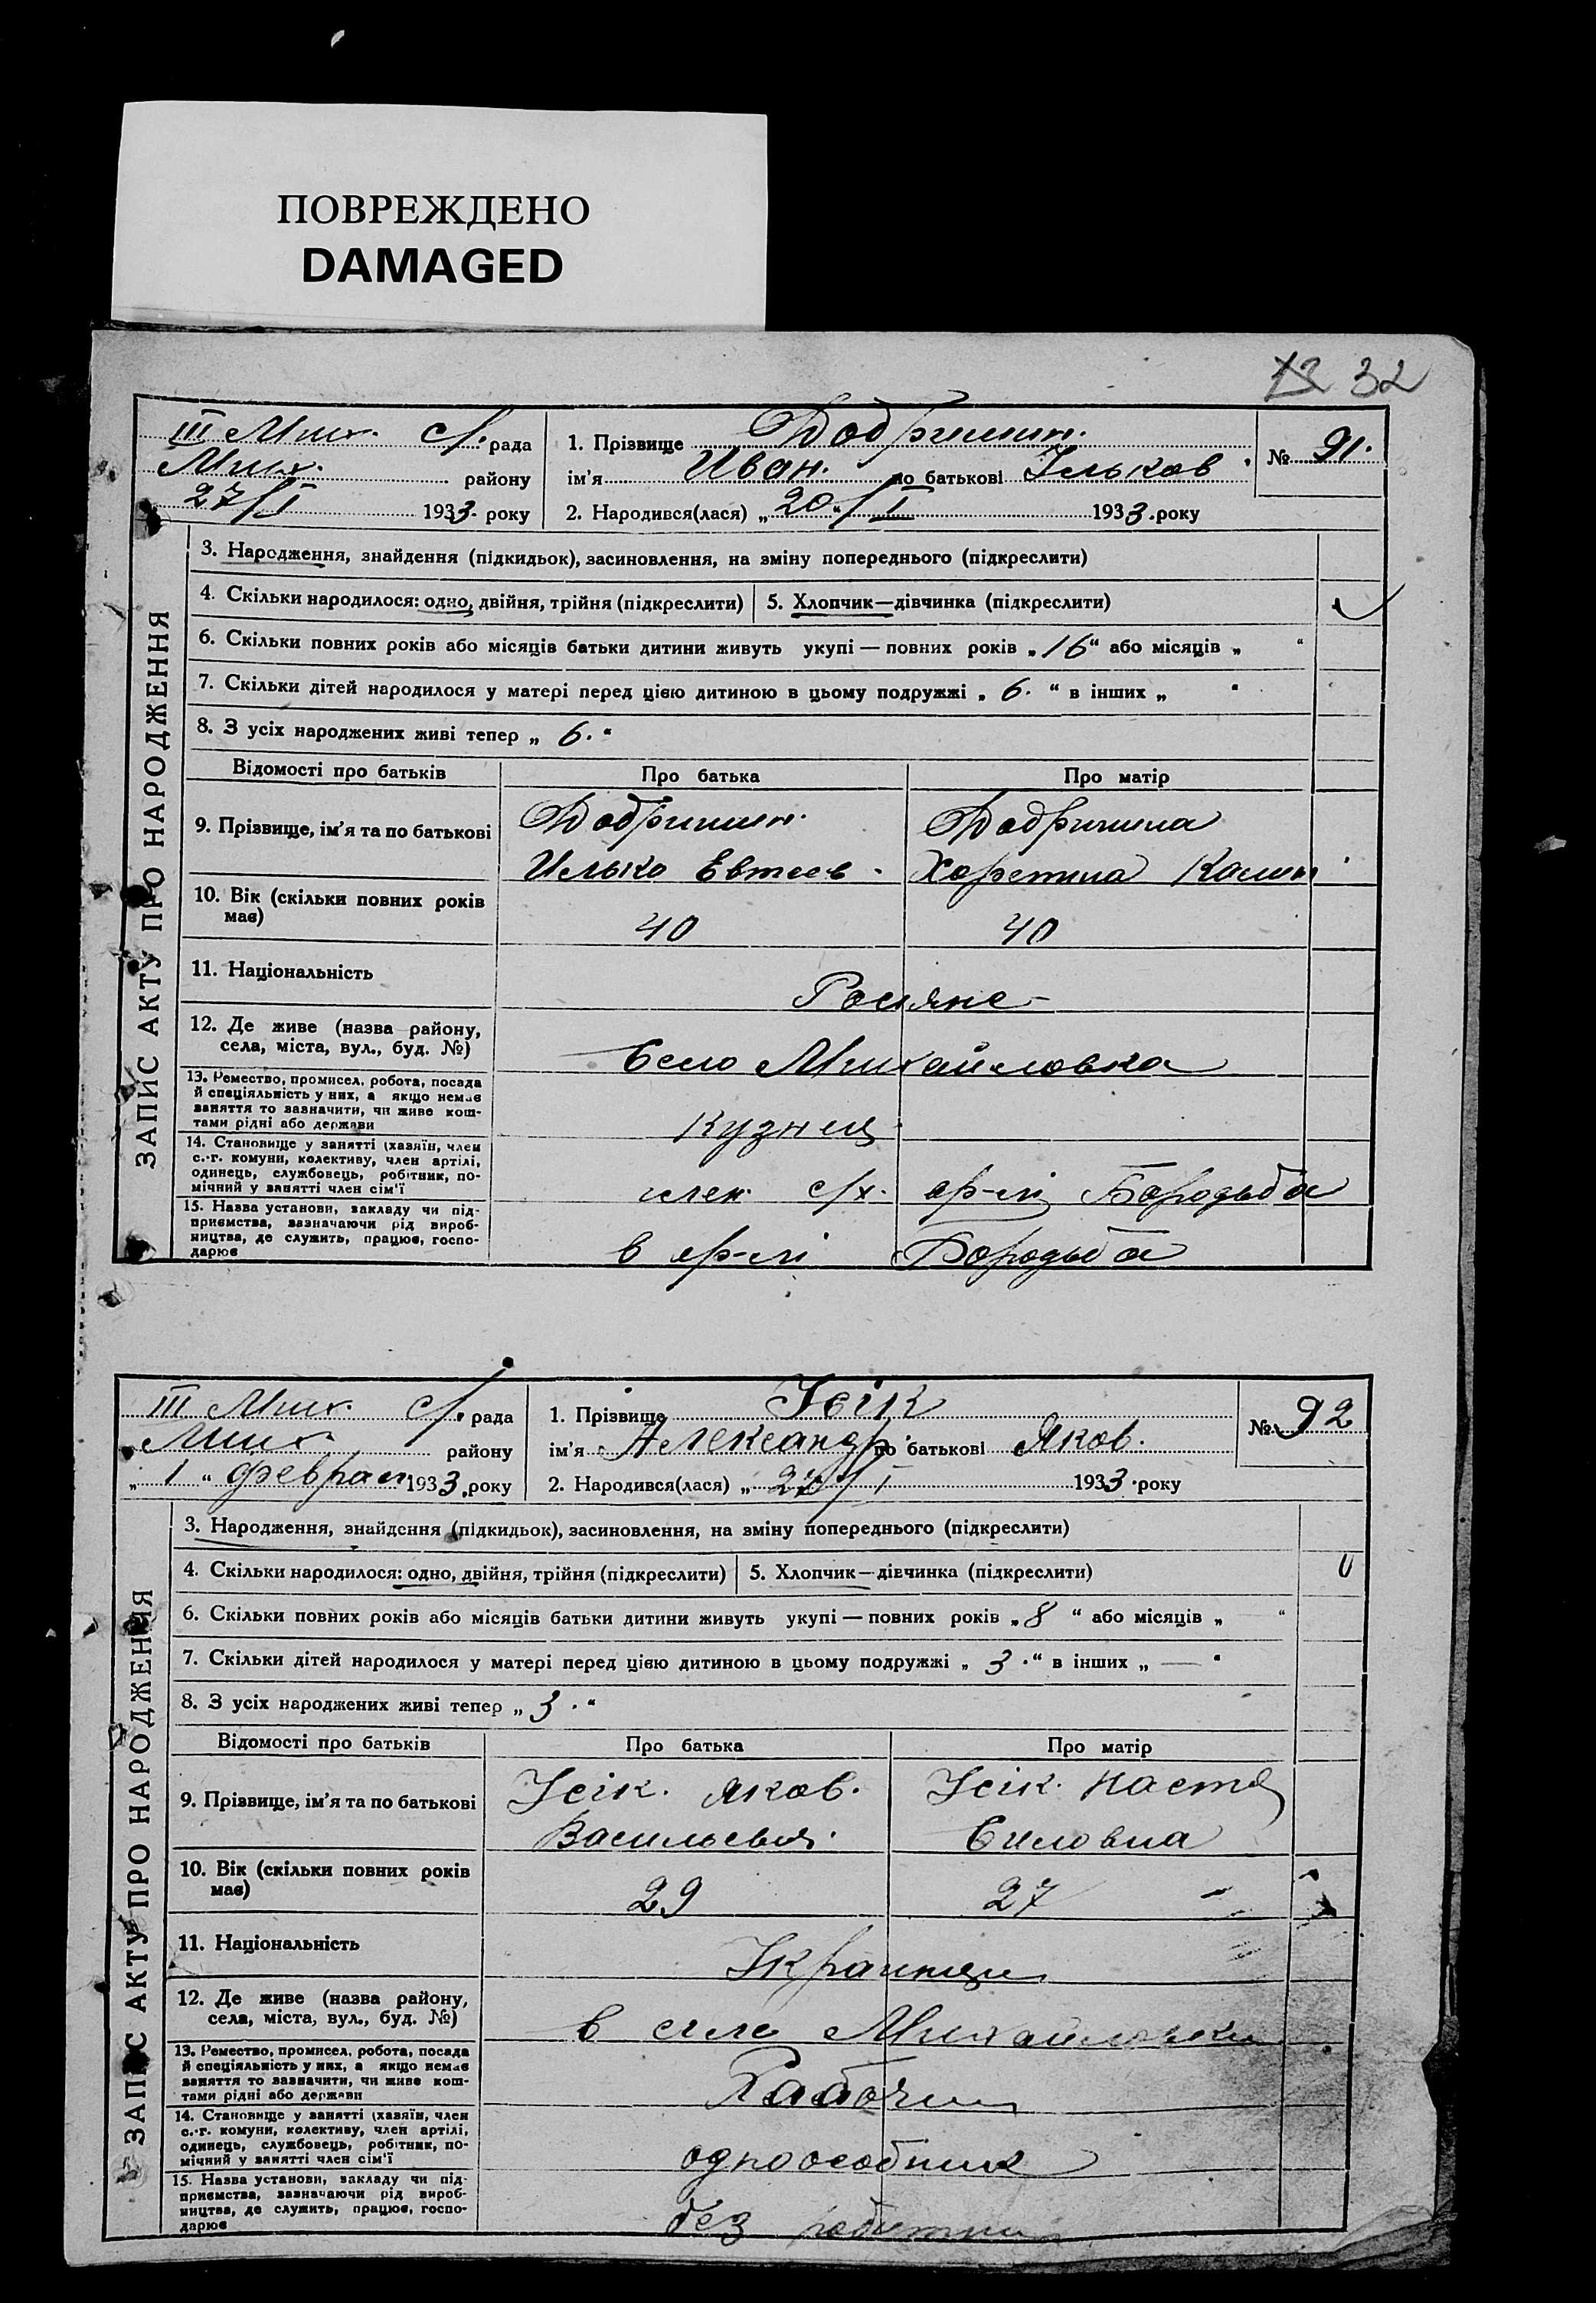 ПОВРЕЖДЕНО
DAMAGED
32
III Мих. с/рада
Мих. району
27/I 1933. року
1. Прізвище Добришин.
ім'я Иван. по батькові Ільков
№ 91.
2. Народився(лася) „20“/I 1933.року
ЗАПИС АКТУ ПРО НАРОДЖЕННЯ
3. Народження, знайдення (підкидьок), засиновлення, на зміну попереднього (підкреслити)
4. Скільки народилося: одно, двійня, трійня (підкреслити) 5. Хлопчик—дівчинка (підкреслити)
6. Скільки повних років або місяців батьки дитини живуть укупі — повних років „16“ або місяців „ “
7. Скільки дітей народилося у матері перед цією дитиною в цьому подружжі „ 6. “ в інших „ “
8. З усіх народжених живі тепер „ 6. “
Відомості про батьків Про батька Про матір
9. Прізвище, ім'я та по батькові
Добришин. Добришина
Илько Евтеев. Харетина Калин
10. Вік (скільки повних років має)
40 40
11. Національність
Росияне
12. Де живе (назва району,
села, міста, вул., буд. №)
Село Михайловка
13. Ремество, промисел, робота, посада
й спеціяльність у них, а якщо немає
заняття то зазначити, чи живе кош-
тами рідні або держави
Кузнец
14. Становище у занятті (хазяїн, член
с.-г. комуни, колективу, член артілі,
одинець, службовець, робітник, по-
мічний у занятті член сім'ї
член с/х. ар-лі Бородьба
15. Назва установи, закладу чи під-
приємства, зазначаючи рід вироб-
ництва, де служить, працює, госпо-
дарює
в ар-лі Бородьба
III Мих. с/рада
Мих. району
„ 1 “ феврал 1933.року
1. Прізвище Усік
ім'я Александр. по батькові Яков.
№ 92
2. Народився(лася) „ 27/I 1933.року
ЗАПИС АКТУ ПРО НАРОДЖЕННЯ
3. Народження, знайдення (підкидьок), засиновлення, на зміну попереднього (підкреслити)
4. Скільки народилося: одно, двійня, трійня (підкреслити) 5. Хлопчик—дівчинка (підкреслити)
6. Скільки повних років або місяців батьки дитини живуть укупі — повних років „8 “ або місяців „ “
7. Скільки дітей народилося у матері перед цією дитиною в цьому подружжі „ 3 .“ в інших „ — “
8. З усіх народжених живі тепер „ 3 . “
Відомості про батьків Про батька Про матір
9. Прізвище, ім'я та по батькові
Усік. Яков. Усік. Настя
Васильевич. Силовна
10. Вік (скільки повних років має)
29 27
11. Національність
Украинци
12. Де живе (назва району,
села, міста, вул., буд. №)
в селе Михайловки
13. Ремество, промисел, робота, посада
й спеціяльність у них, а якщо немає
заняття то зазначити, чи живе кош-
тами рідні або держави
Рабочи
14. Становище у занятті (хазяїн, член
с.-г. комуни, колективу, член артілі,
одинець, службовець, робітник, по-
мічний у занятті член сім'ї
одноособник
15. Назва установи, закладу чи під-
приємства, зазначаючи рід вироб-
ництва, де служить, працює, госпо-
дарює
без